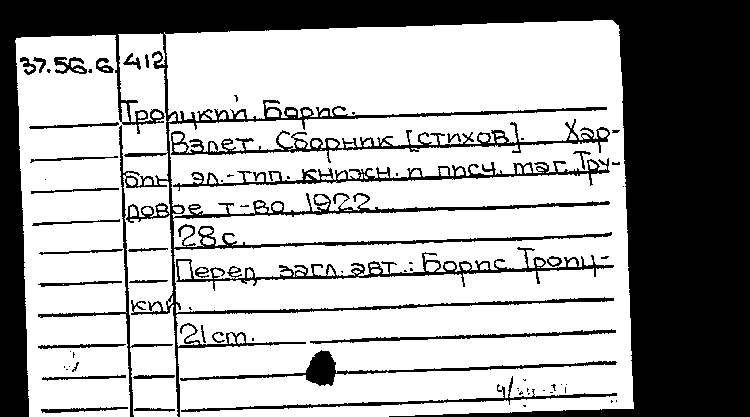 37.56.6. 412
Троицкий, Борис.
Взлет. Сборник [стихов]. Хар-
бин, эл.-тип. книжн. и писч. маг. Тру-
довое т-во, 1922.
28 с.
Перед загл. авт.: Борис Троиц-
кий.
21 cm.